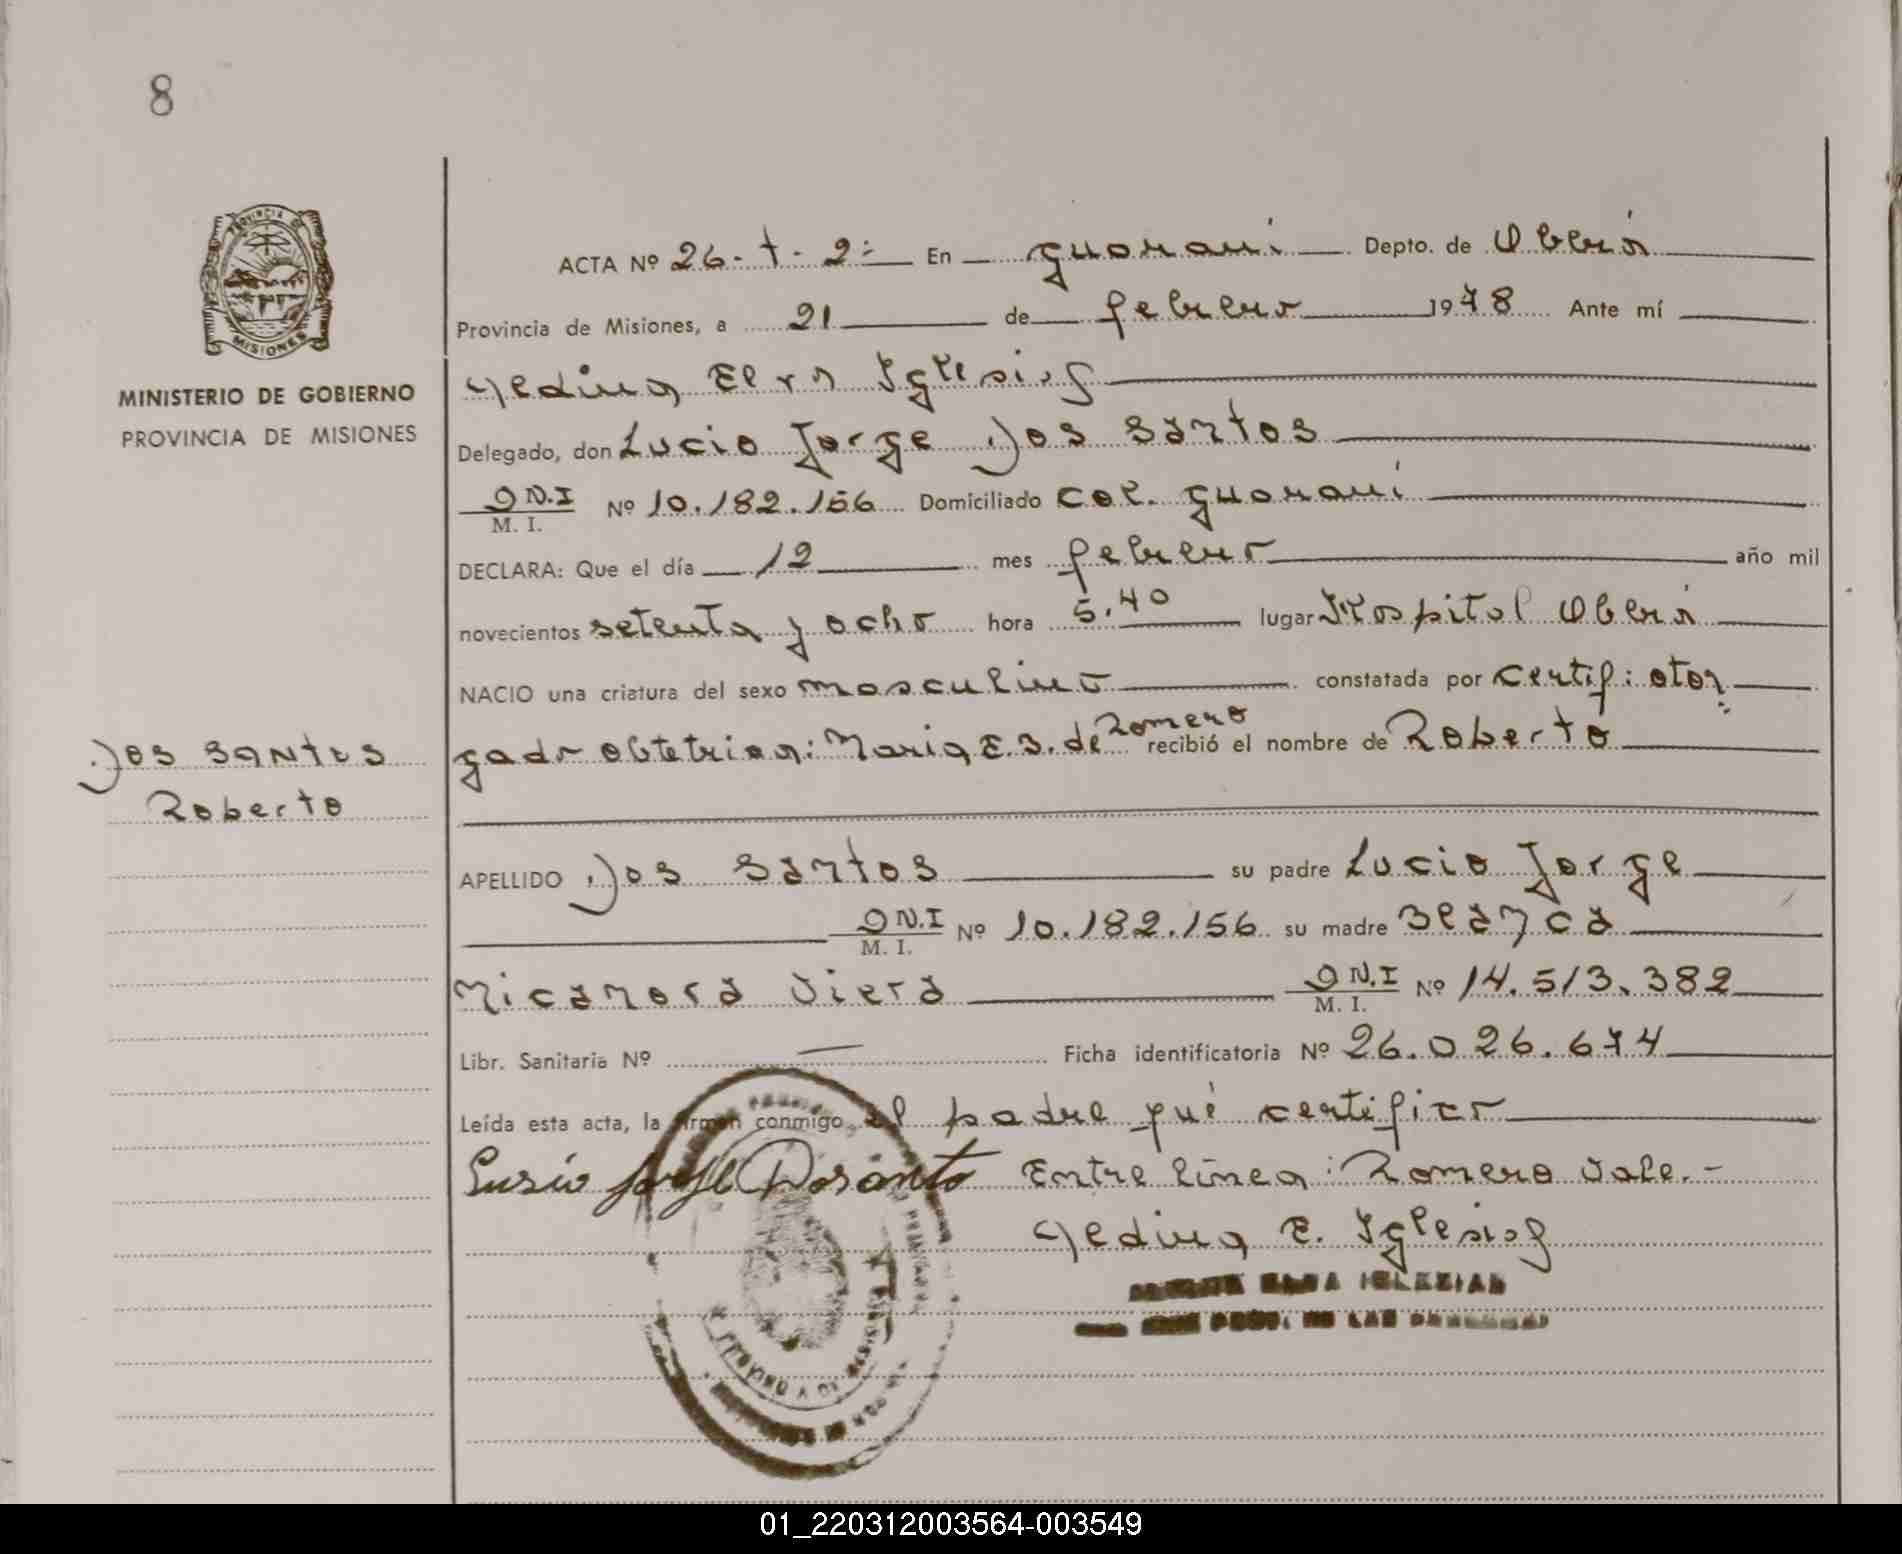 8
PROVINCIA DE
MISIONES
MINISTERIO DE GOBIERNO
PROVINCIA DE MISIONES
ACTA Nº 26 - t - 2= En guarani Depto. de Oberá
Provincia de Misiones, a 21 de febrero 1978 Ante mí
Elsa Iglesias
Delegado, don Lucio Jorge Dos Santos
D N.I
M. I. Nº 10.182.156 Domiciliado Col. guarani
DECLARA: Que el día 12 mes febrero año mil
novecientos setenta y ocho hora 5.40 lugar Hospital Oberá
NACIO una criatura del sexo masculino constatada por certif: otor
gado obtetrica: Maria E. B. de Romero recibió el nombre de Roberto
Dos Santos
Roberto
APELLIDO Dos Santos su padre Lucio Jorge
D N.I
M. I. Nº 10.182.156 su madre Blanca
Nicanora Viera D N.I
M. I. Nº 14.513.382
Libr. Sanitaria Nº — Ficha identificatoria Nº 26.026.674
Leída esta acta, la firman conmigo, el padre que certifico
Jorge Dosanto Entre linea: Romero Vale.-
E. Iglesias
01_220312003564-003549